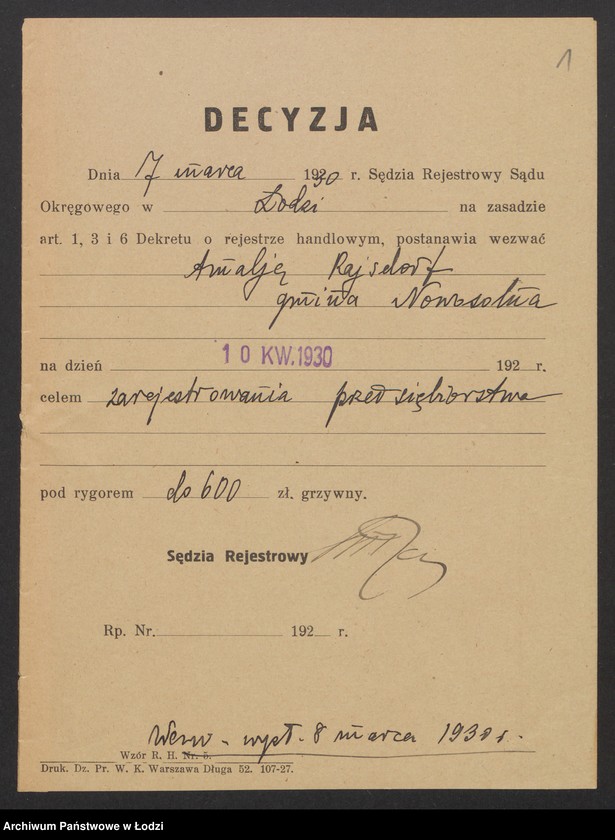 1
DECYZJA
Dnia 7 marca 1930 r. Sędzia Rejestrowy Sądu
Okręgowego w Łodzi na zasadzie
art. 1, 3 i 6 Dekretu o rejestrze handlowym, postanawia wezwać
Amalję Rajsdorf
gmina Nowosolna
na dzień 10 KW. 1930 192 r.
celem zarejestrowania przedsiębiorstwa
pod rygorem do 600 zł. grzywny.
Sędzia Rejestrowy
Rp. Nr. 192 r.
Wezw. wysł. 8 marca 1930 r.
Wzór R. H. Nr. 5.
Druk. Dz. Pr. W. K. Warszawa Długa 52. 107-27.
Archiwum Państwowe w Łodzi